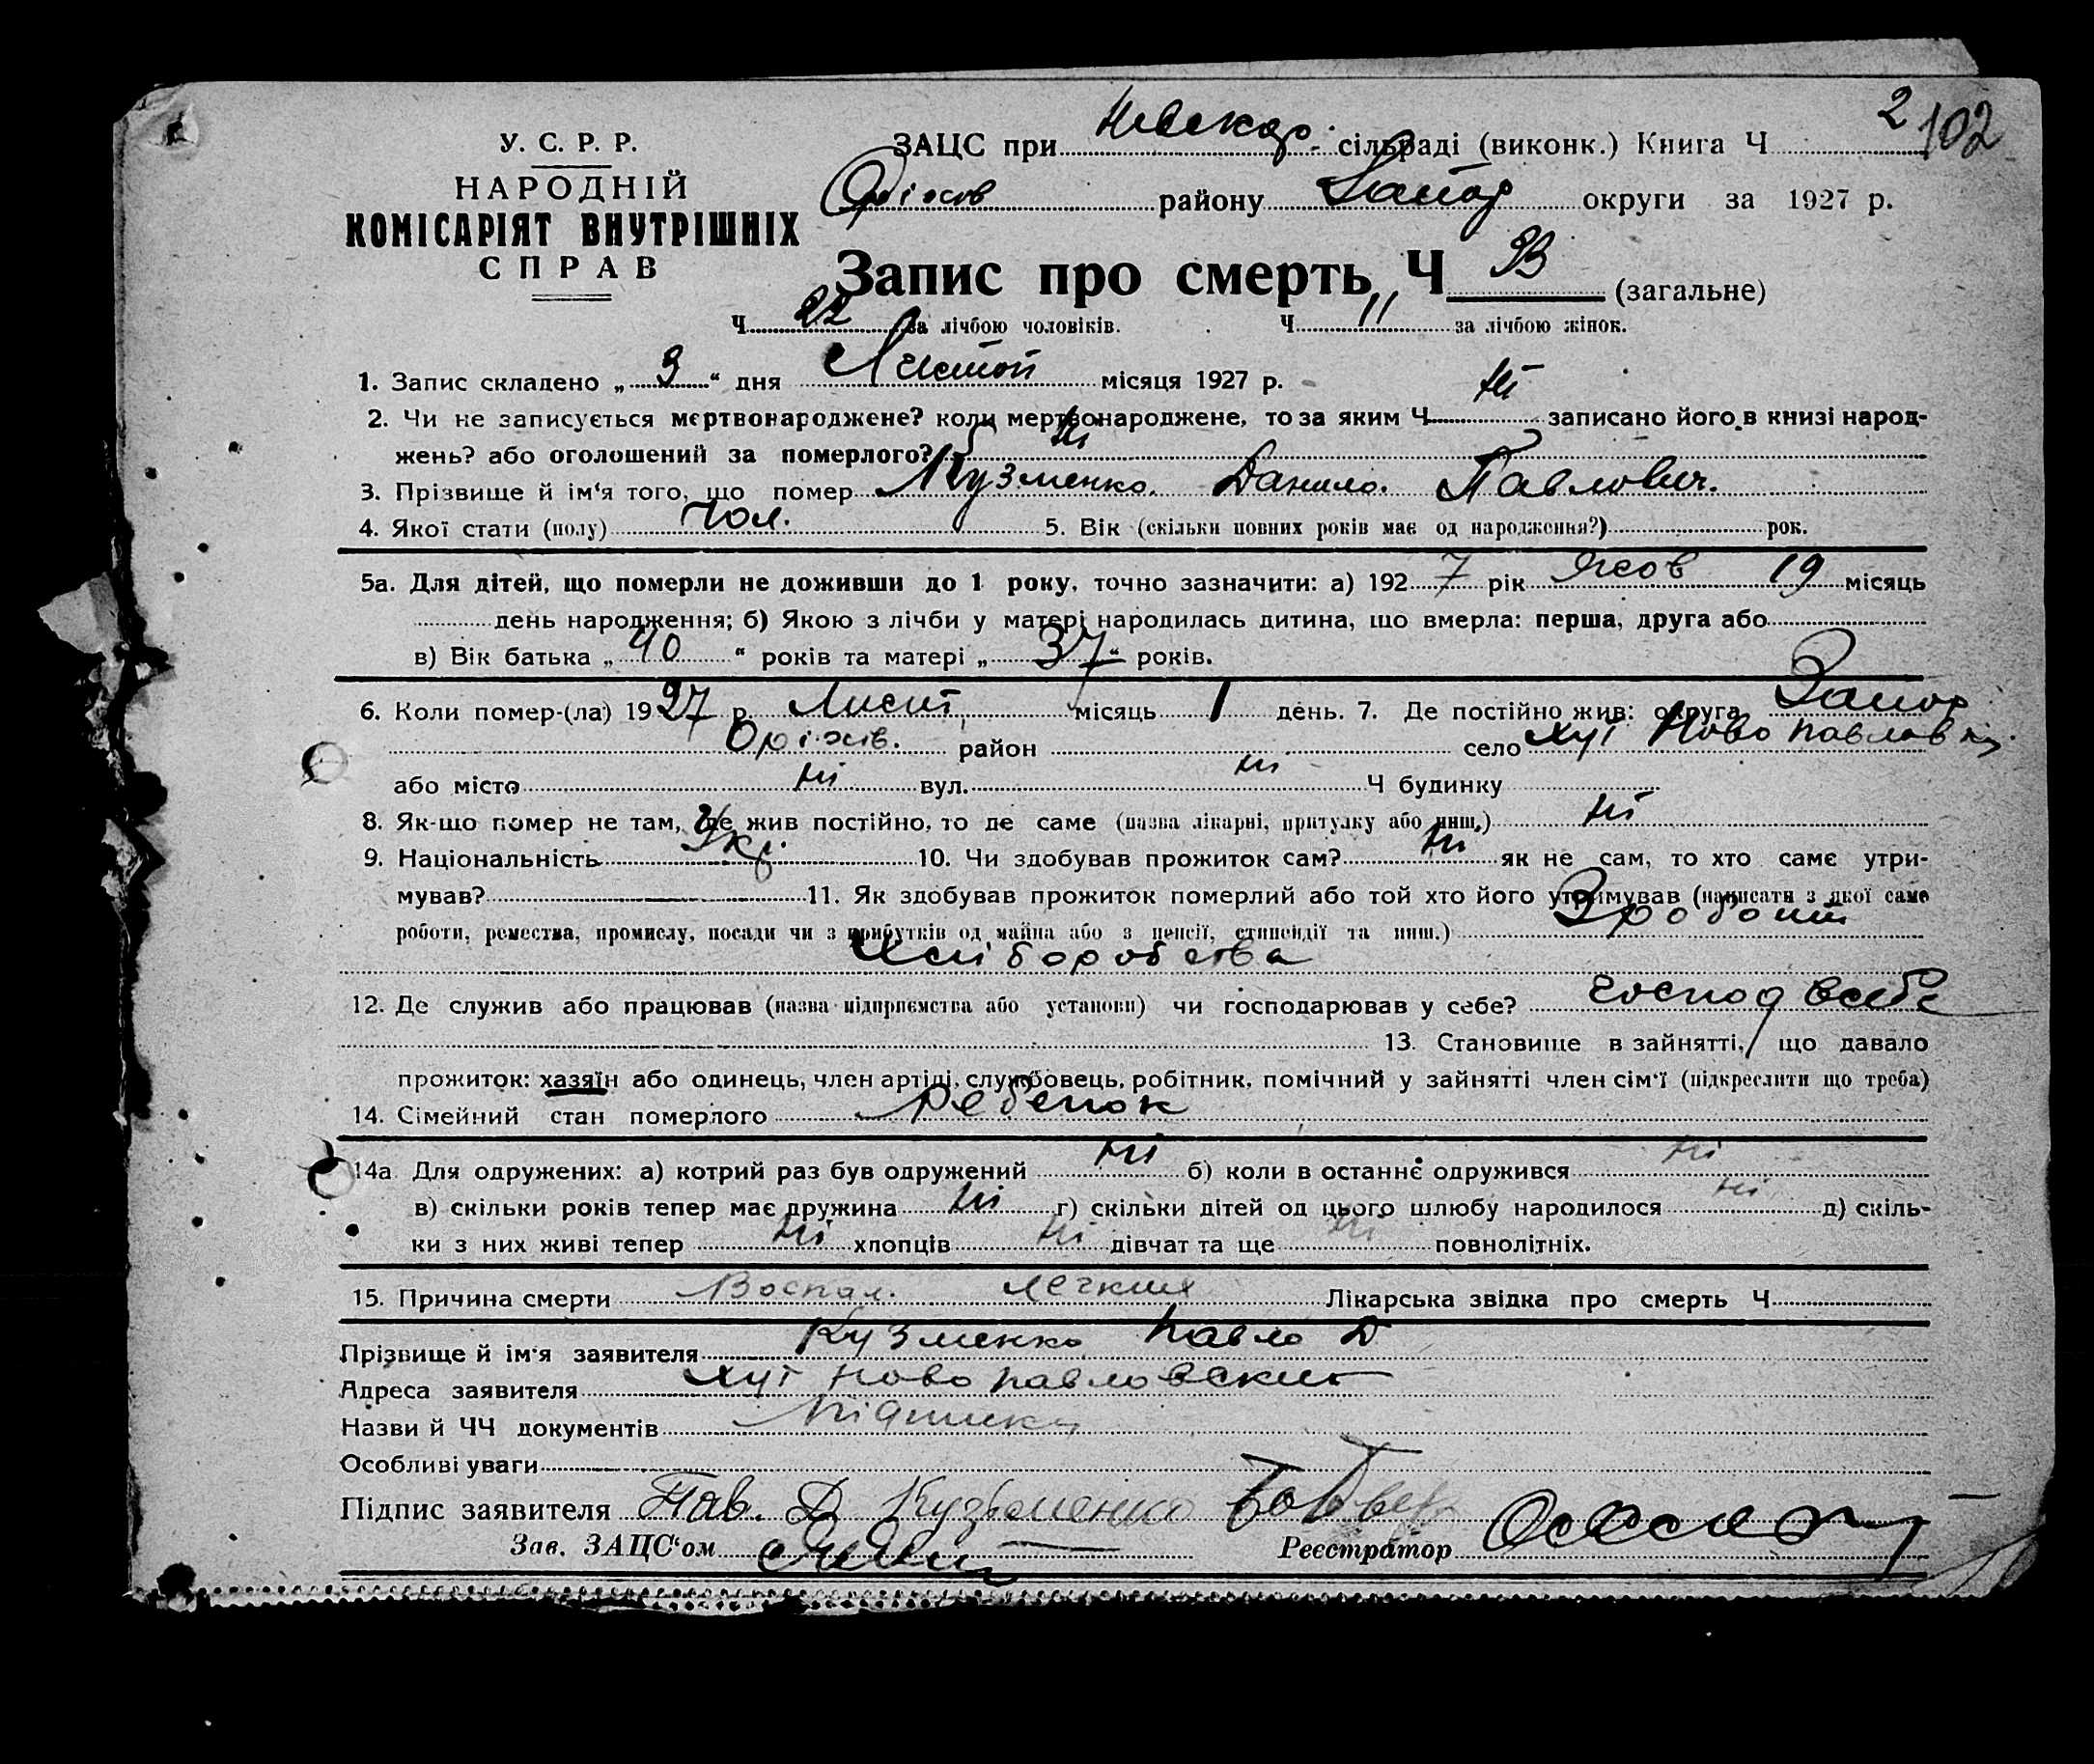 У. С. Р. Р.
НАРОДНІЙ
КОМІСАРІЯТ ВНУТРІШНІХ
СПРАВ
ЗАЦС при сільраді (виконк.) Книга Ч 2 102
Оріхов району Запор округи за 1927 р.
Запис про смерть Ч 33 (загальне)
Ч. 22 за лічбою чоловіків. Ч. 11 за лічбою жінок.
1. Запис складено „ 3 “ дня Листоп місяця 1927 р.
2. Чи не записується мертвонароджене? коли мертвонароджене, то за яким Ч. ні записано його в книзі народ-
жень? або оголошений за померлого? ні
3. Прізвище й ім‘я того, що помер Кузменко Данило Павлович.
4. Якої стати (полу) Чол. 5. Вік (скільки повних років має од народження?) рок.
5а. Для дітей, що померли не доживши до 1 року, точно зазначити: а) 192 7 рік 19 місяць
день народження; б) Якою з лічби у матері народилась дитина, що вмерла: перша, друга або
в) Вік батька „ 40 “ років та матері „ 37 “ років.
6. Коли помер-(ла) 19 27 р. Лист. місяць 1 день. 7. Де постійно жив: округа Запор
Оріхів. район село хут Ново Павловк
або місто ні вул. ні Ч будинку
8. Як-що помер не там, де жив постійно, то де саме (назва лікарні, притулку або инш.) ні
9. Національність Укр. 10. Чи здобував прожиток сам? ні як не сам, то хто саме утри-
мував? 11. Як здобував прожиток померлий або той хто його утримував (написати з якої саме
роботи, ремества, промислу, посади чи з прибутків од майна або з пенсії, стипендії та инш.) З робот
хліборобства
12. Де служив або працював (назва підприємства або установи) чи господарював у себе? господ в себе
13. Становище в зайнятті, що давало
прожиток: хазяїн або одинець, член артілі, службовець, робітник, помічний у зайнятті член сім‘ї (підкреслити що треба)
14. Сімейний стан померлого ребенок
14а Для одружених: а) котрий раз був одружений ні б) коли в останнє одружився ні
в) скільки років тепер має дружина ні г) скільки дітей од цього шлюбу народилося ні д) скіль-
ки з них живі тепер ні хлопців ні дівчат та ще ні повнолітніх.
15. Причина смерти Воспал. легких Лікарська звідка про смерть Ч
Прізвище й ім‘я заявителя Кузменко Павло Д
Адреса заявителя хут Ново Павловский
Назви й ЧЧ документів
Особливі уваги
Підпис заявителя Пав. Д Кузьменко
Зав. ЗАЦС‘ом Реєстратор